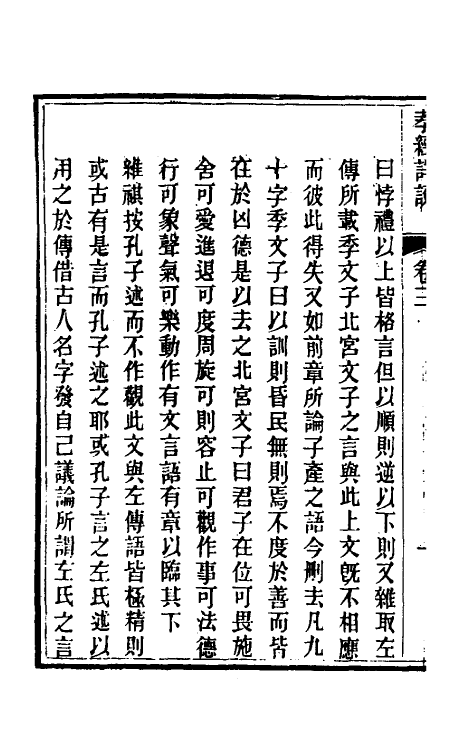 孝經詳說
卷三
曰悖禮以上皆格言但以順則逆以下則又雜取左
傳所載季文子北宮文子之言與此上文旣不相應
而彼此得失又如前章所論子產之語今刪去凡九
十字季文子曰以訓則昏民無則焉不度於善而皆
在於凶德是以去之北宮文子曰君子在位可畏施
舍可愛進退可度周旋可則容止可觀作事可法德
行可象聲氣可樂動作有文言語有章以臨其下
維祺按孔子述而不作觀此文與左傳語皆極精則
或古有是言而孔子述之耶或孔子言之左氏述以
用之於傳借古人名字發自己議論所謂左氏之言